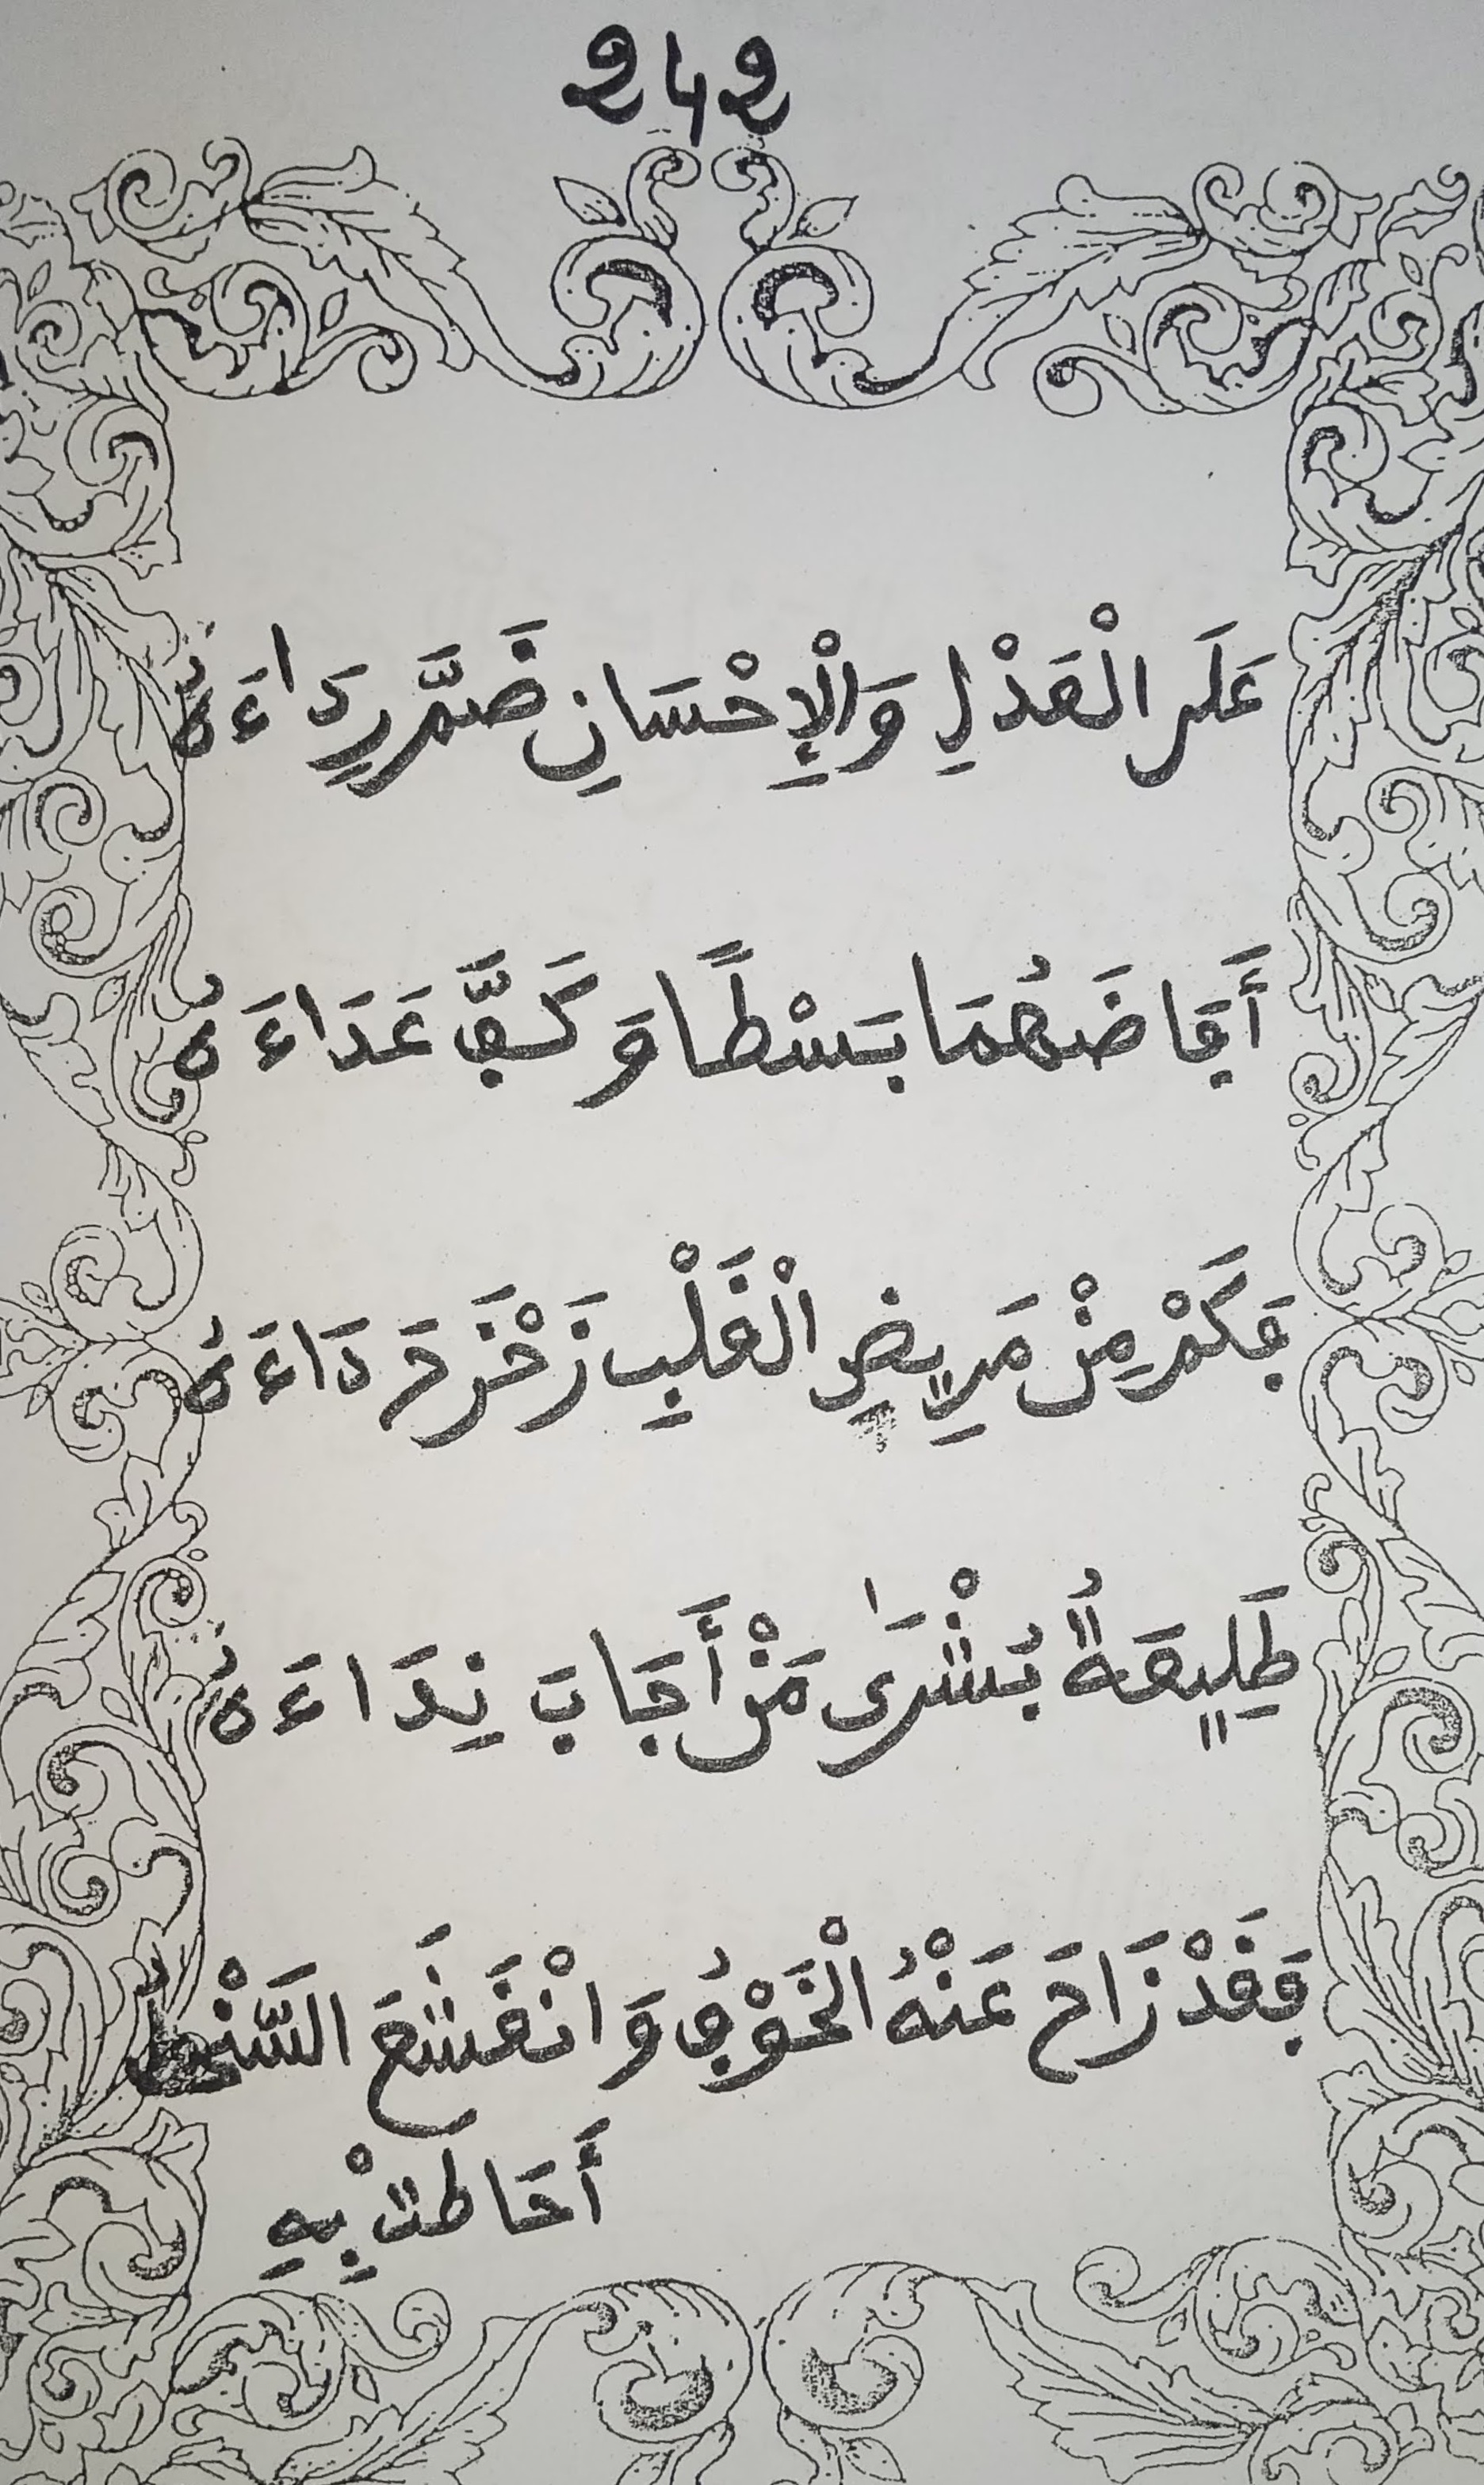 242
عَلَى الْعَدْلِ وَالْإِحْسَانِ ضَمَّ رِدَاءَهُ
أَفَاضَهُمَا بَسْطًا وَكَفَّ عَدَاءَهُ
فَكَمْ مِنْ مَرِيضِ الْقَلْبِ زَحْزَحَ دَاءَهُ
طَلِيعَةُ بُشْرَى مَنْ أَجَابَ نِدَاءَهُ
فَقَدْ زَاحَ عَنْهُ الْخَوْفُ وَانْقَشَعَ
أَحَاطَتْ بِهِ